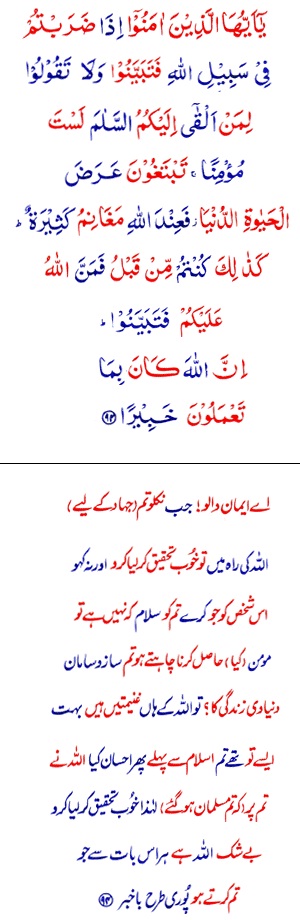 يٰٓاَيُّهَا الَّذِيْنَ اٰمَنُوْٓا اِذَا ضَرَبْتُمْ
فِيْ سَبِيْلِ اللّٰهِ فَتَبَيَّنُوْا وَلَا تَقُوْلُوْا
لِمَنْ اَلْقٰٓى اِلَيْكُمُ السَّلٰمَ لَسْتَ
مُؤْمِنًا ۚ تَبْتَغُوْنَ عَرَضَ
الْحَيٰوةِ الدُّنْيَا ۫ فَعِنْدَ اللّٰهِ مَغَانِمُ كَثِيْرَةٌ ؕ
كَذٰلِكَ كُنْتُمْ مِّنْ قَبْلُ فَمَنَّ اللّٰهُ
عَلَيْكُمْ فَتَبَيَّنُوْا ؕ
اِنَّ اللّٰهَ كَانَ بِمَا
تَعْمَلُوْنَ خَبِيْرًا ﴿۹۴﴾
اے ایمان والو! جب نکلو تم (جہاد کے لیے)
اللہ کی راہ میں تو خُوب تحقیق کرلیا کرو اور نہ کہو
اس شخص کو جو کرے تم کو سلام کہ نہیں ہے تو
مومن (کیا) حاصل کرنا چاہتے ہو تم سازو سامان
دنیاوی زندگی کا؟ تو اللہ کے ہاں غنیمتیں ہیں بہت
ایسے تو تھے تم اسلام سے پہلے پھر احسان کیا اللہ نے
تم پر (کہ تم مسلمان ہوگئے) لہٰذا خُوب تحقیق کرلیا کرو
بے شک اللہ ہے ہر اس بات سے جو
تم کرتے ہو پُوری طرح باخبر ﴿۹۴﴾